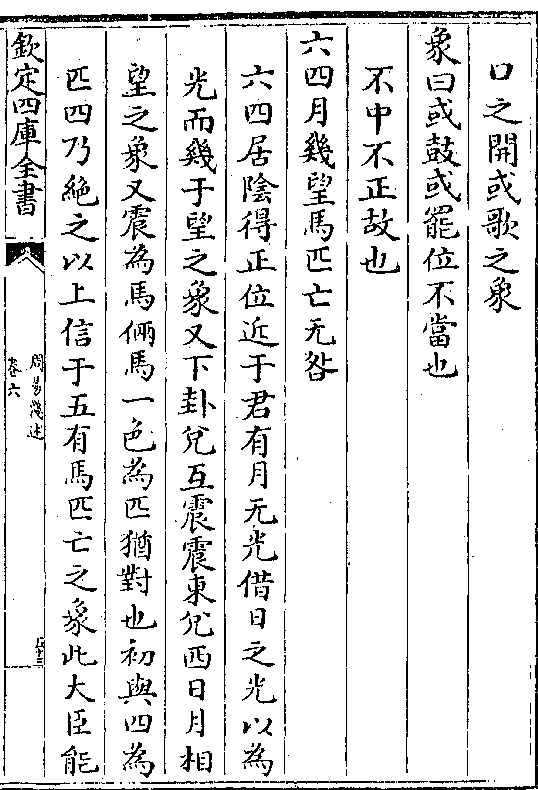 口之開或歌之象
象曰或鼓或罷位不當也
不中不正故也
六四月幾望馬匹亡无咎
六四居陰得正位近于君有月无光借日之光以為
光而幾于望之象又下卦兌互震震東兌西日月相
望之象又震為馬倆馬一色為匹猶對也初與四為
匹四乃絶之以上信于五有馬匹亡之象此大臣能
欽定四庫全書
周易淺述
卷六